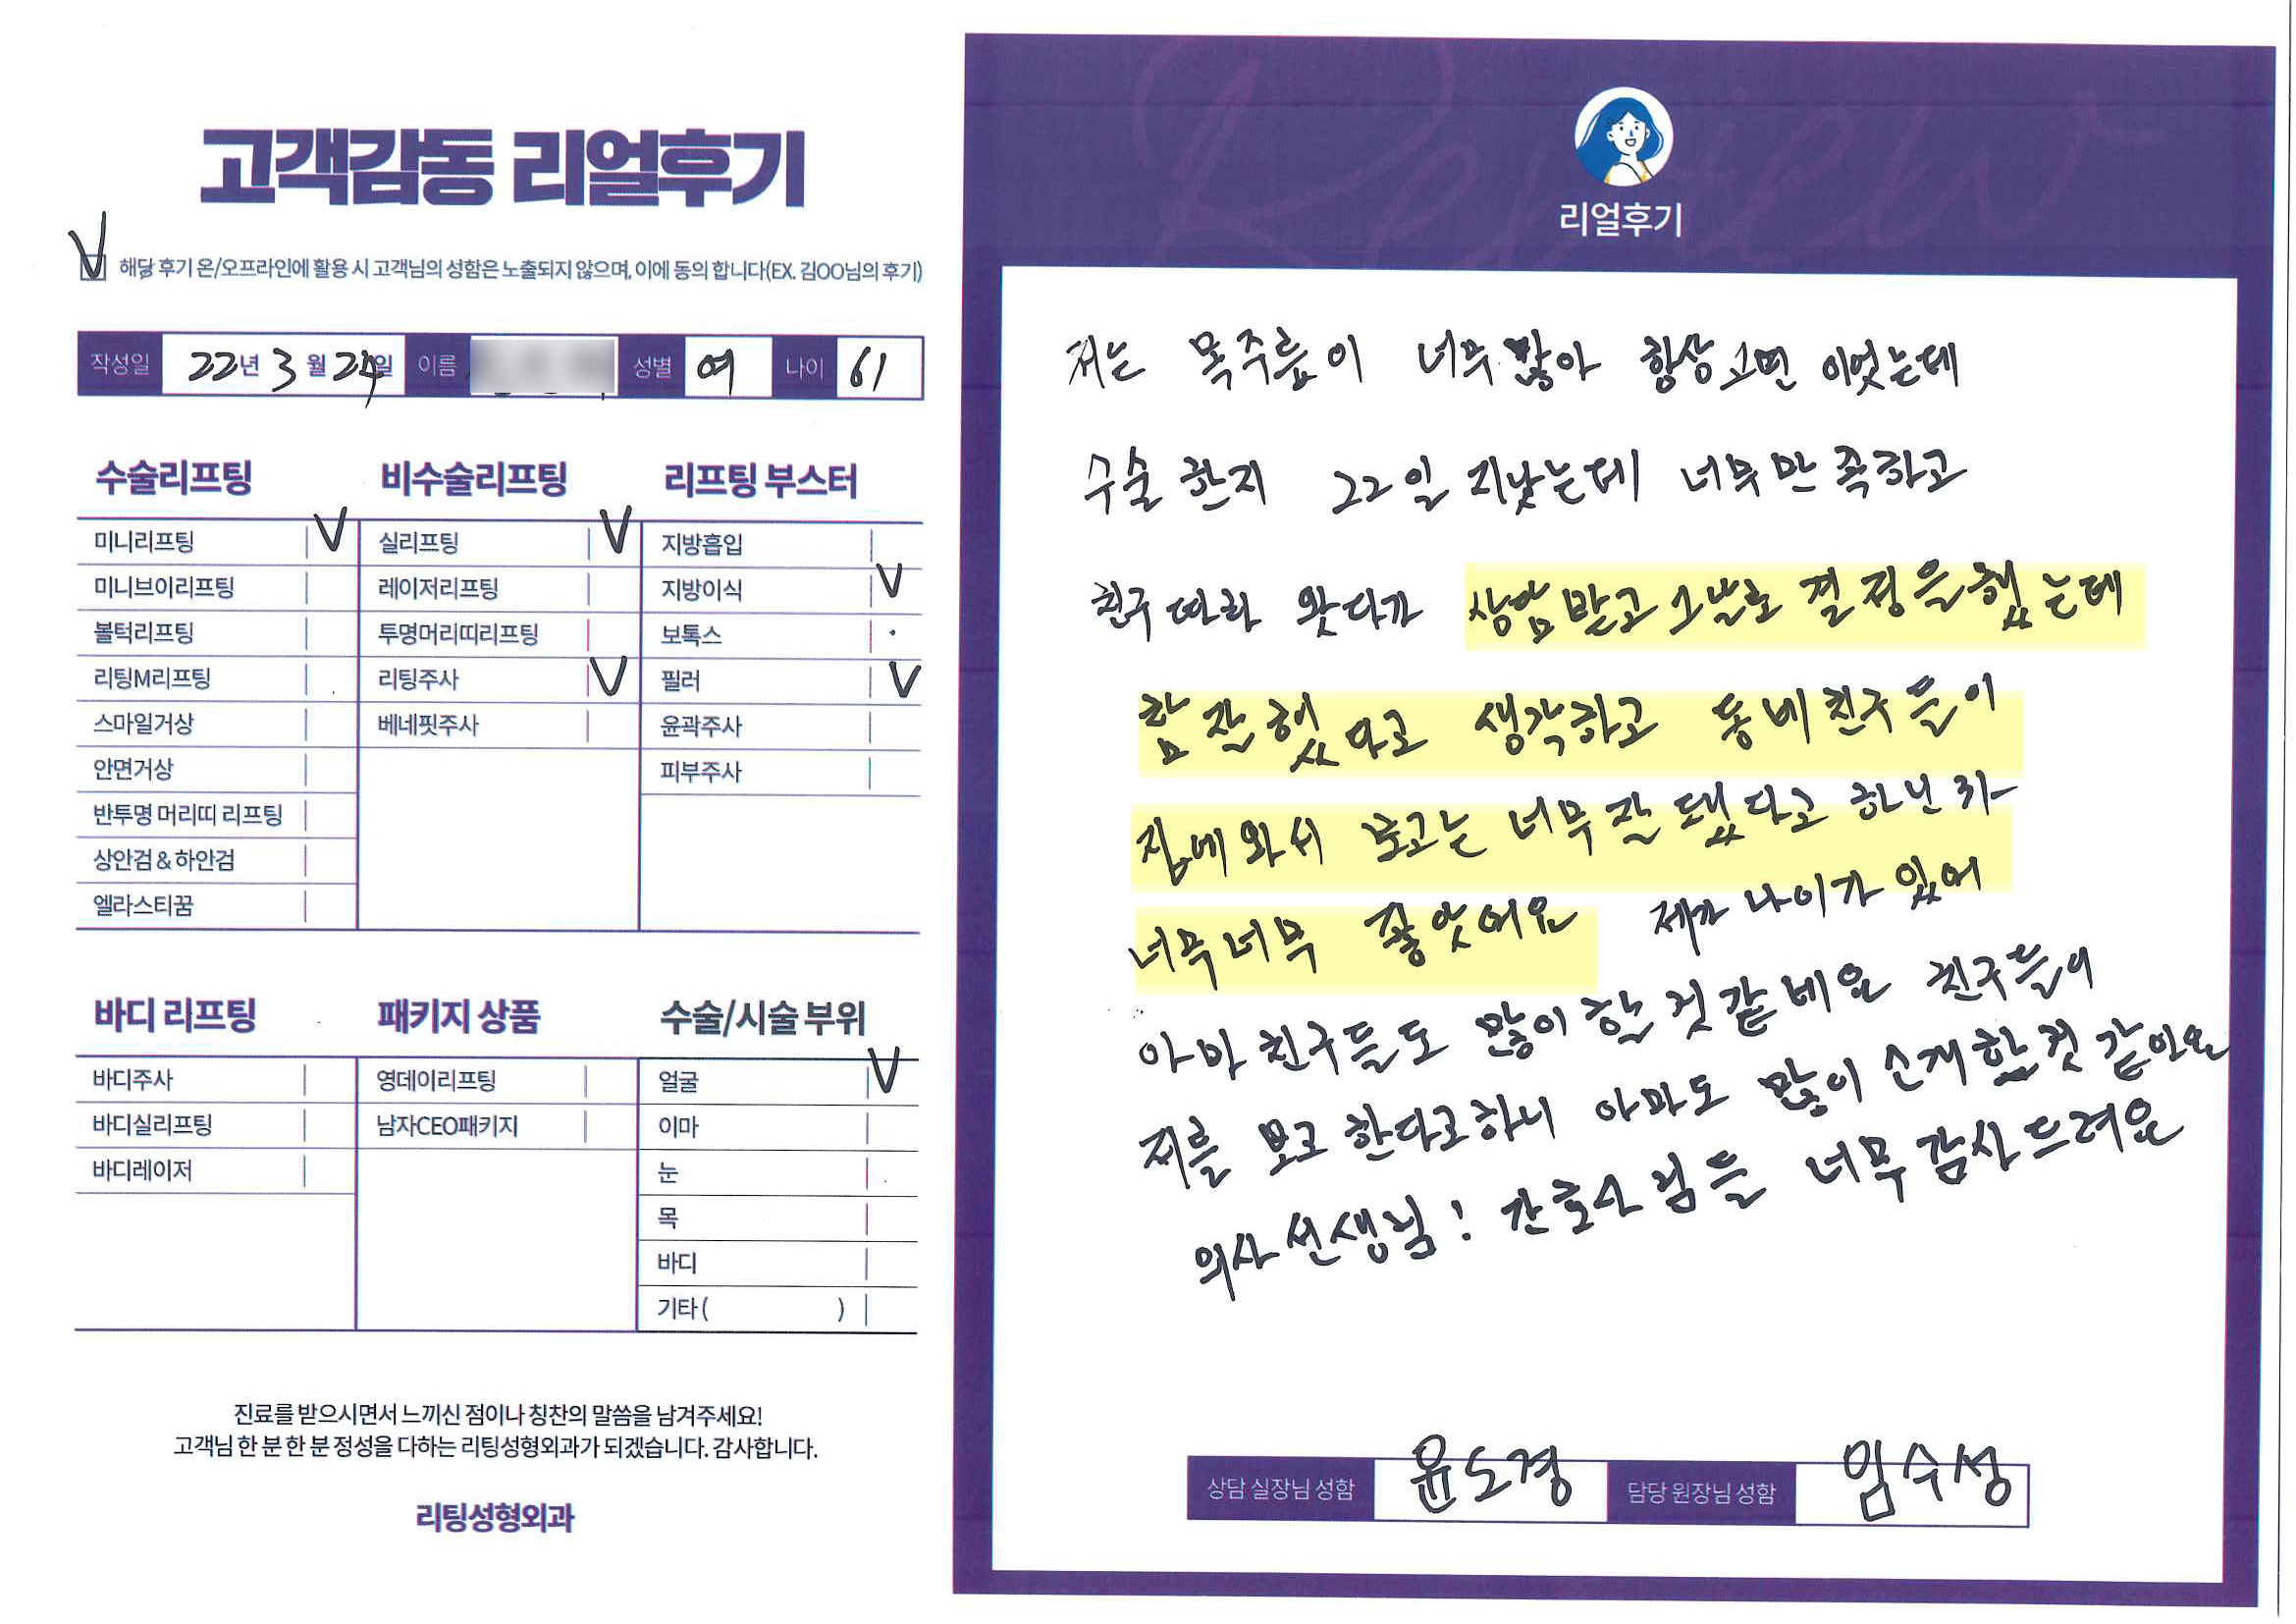 고객감동 리얼후기
V 해당 후기 온/오프라인에 활용 시 고객님의 성함은 노출되지 않으며, 이에 동의 합니다(EX. 김OO님의 후기)
작성일 22년 3월 24일 이름 성별 여 나이 61
수술리프팅
미니리프팅 V
미니브이리프팅
볼턱리프팅
리팅M리프팅
스마일거상
안면거상
반투명 머리띠 리프팅
상안검 & 하안검
엘라스티꿈
비수술리프팅
실리프팅 V
레이저리프팅
투명머리띠리프팅
리팅주사 V
베네핏주사
리프팅 부스터
지방흡입
지방이식 V
보톡스
필러 V
윤곽주사
피부주사
바디 리프팅
바디주사
바디실리프팅
바디레이저
패키지 상품
영데이리프팅
남자CEO패키지
수술/시술 부위
얼굴 V
이마
눈
목
바디
기타 ( )
진료를 받으시면서 느끼신 점이나 칭찬의 말씀을 남겨주세요!
고객님 한 분 한 분 정성을 다하는 리팅성형외과가 되겠습니다. 감사합니다.
리팅성형외과
Review
리얼후기
저는 목주름이 너무 많아 항상 고민 이엇는데
수술 한지 22일 지낫는데 너무 만족하고
친구 따라 왓다가 상담받고 그날로 결정을 했는데
참 잘했다고 생각하고 동네친구들이
집에 와서 보고는 너무 잘 됐다고 하닌까
너무너무 좋앗어요 제가 나이가 있어
아마 친구들도 많이 할 것 같네요 친구들이
저를 보고 한다고하니 아마도 많이 소개 할것 같아요
의사선생님! 간호사님들 너무 감사드려요
상담 실장님 성함 윤도경 담당 원장님 성함 임수성